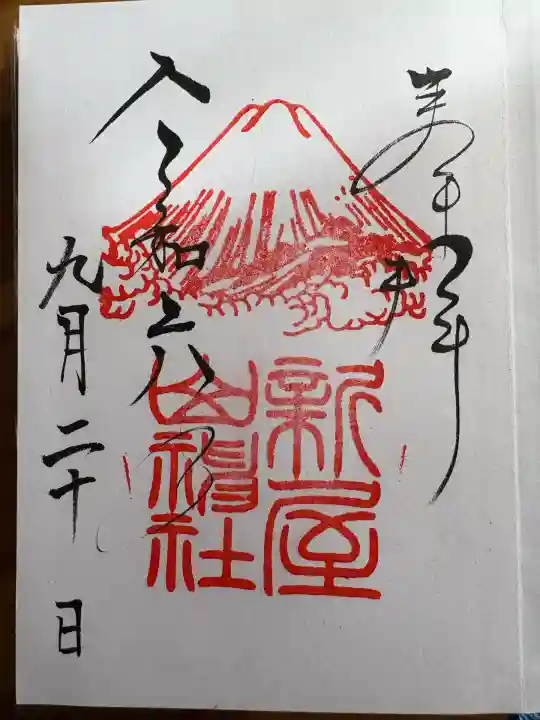 奉拝
新屋
山神社
令和六年
九月二十日